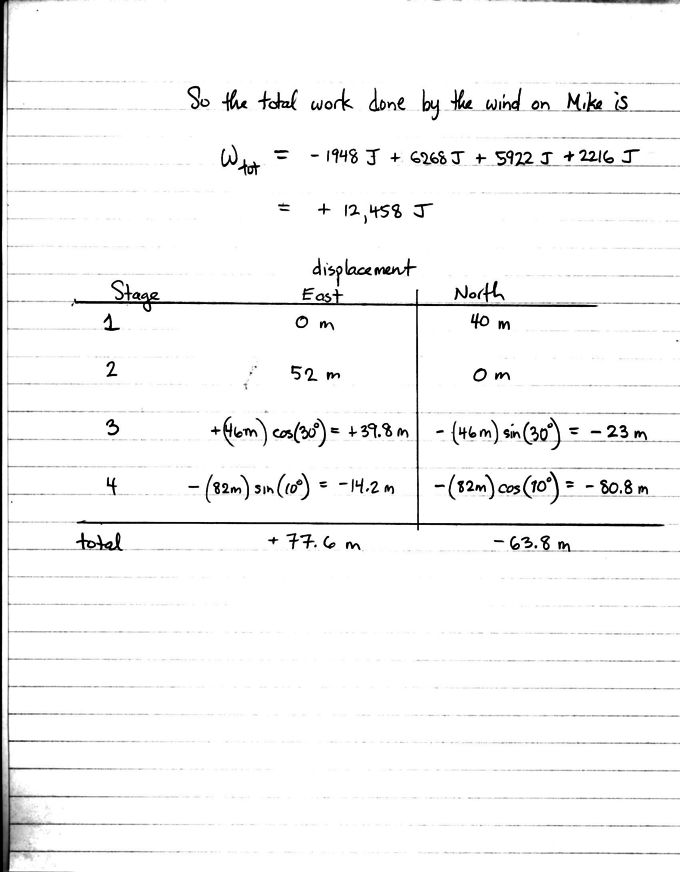 So the total work done by the wind on Mike is
W_tot = - 1948 J + 6268 J + 5922 J + 2216 J
= + 12,458 J
displacement
Stage East North
1 0 m 40 m
2 52 m 0 m
3 +(46m) cos(30°) = +39.8 m - (46m) sin(30°) = - 23 m
4 - (82m) sin(10°) = -14.2 m -(82m) cos(10°) = - 80.8 m
total + 77.6 m - 63.8 m